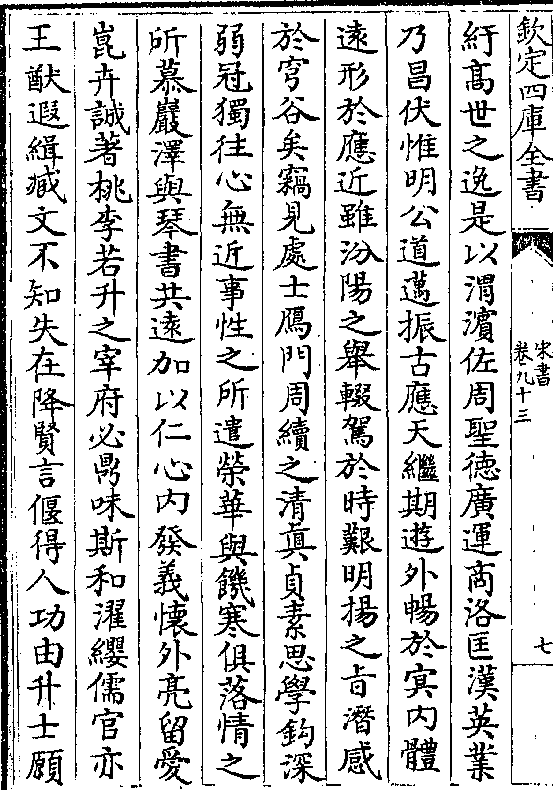 欽定四庫全書
宋書
卷九十三
七
紆髙世之逸是以渭濵佐周聖徳廣運商洛匡漢英業
乃昌伏惟明公道邁振古應天繼期遊外暢於㝠内體
逺形於應近雖汾陽之舉輟駕於時艱明揚之㫖潛感
於穹谷矣竊見處士鴈門周續之清真貞素思學鈎深
弱冠獨往心無近事性之所遣榮華與饑寒俱落情之
所慕巖澤與琴書共逺加以仁心内發義懐外亮留愛
崑卉誠著桃李若升之宰府必鼎味斯和濯纓儒官亦
王猷遐緝臧文不知失在降賢言偃得人功由升士願